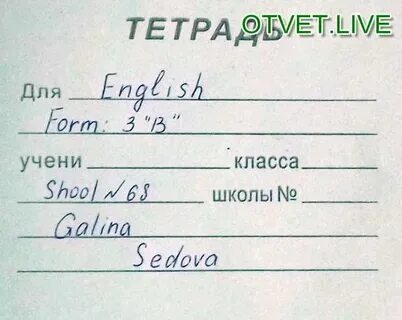 OTVET.LIVE
ТЕТРАДЬ
Для English
Form: 3 "B"
учени класса
Shool №68 школы №
Galina
Sedova